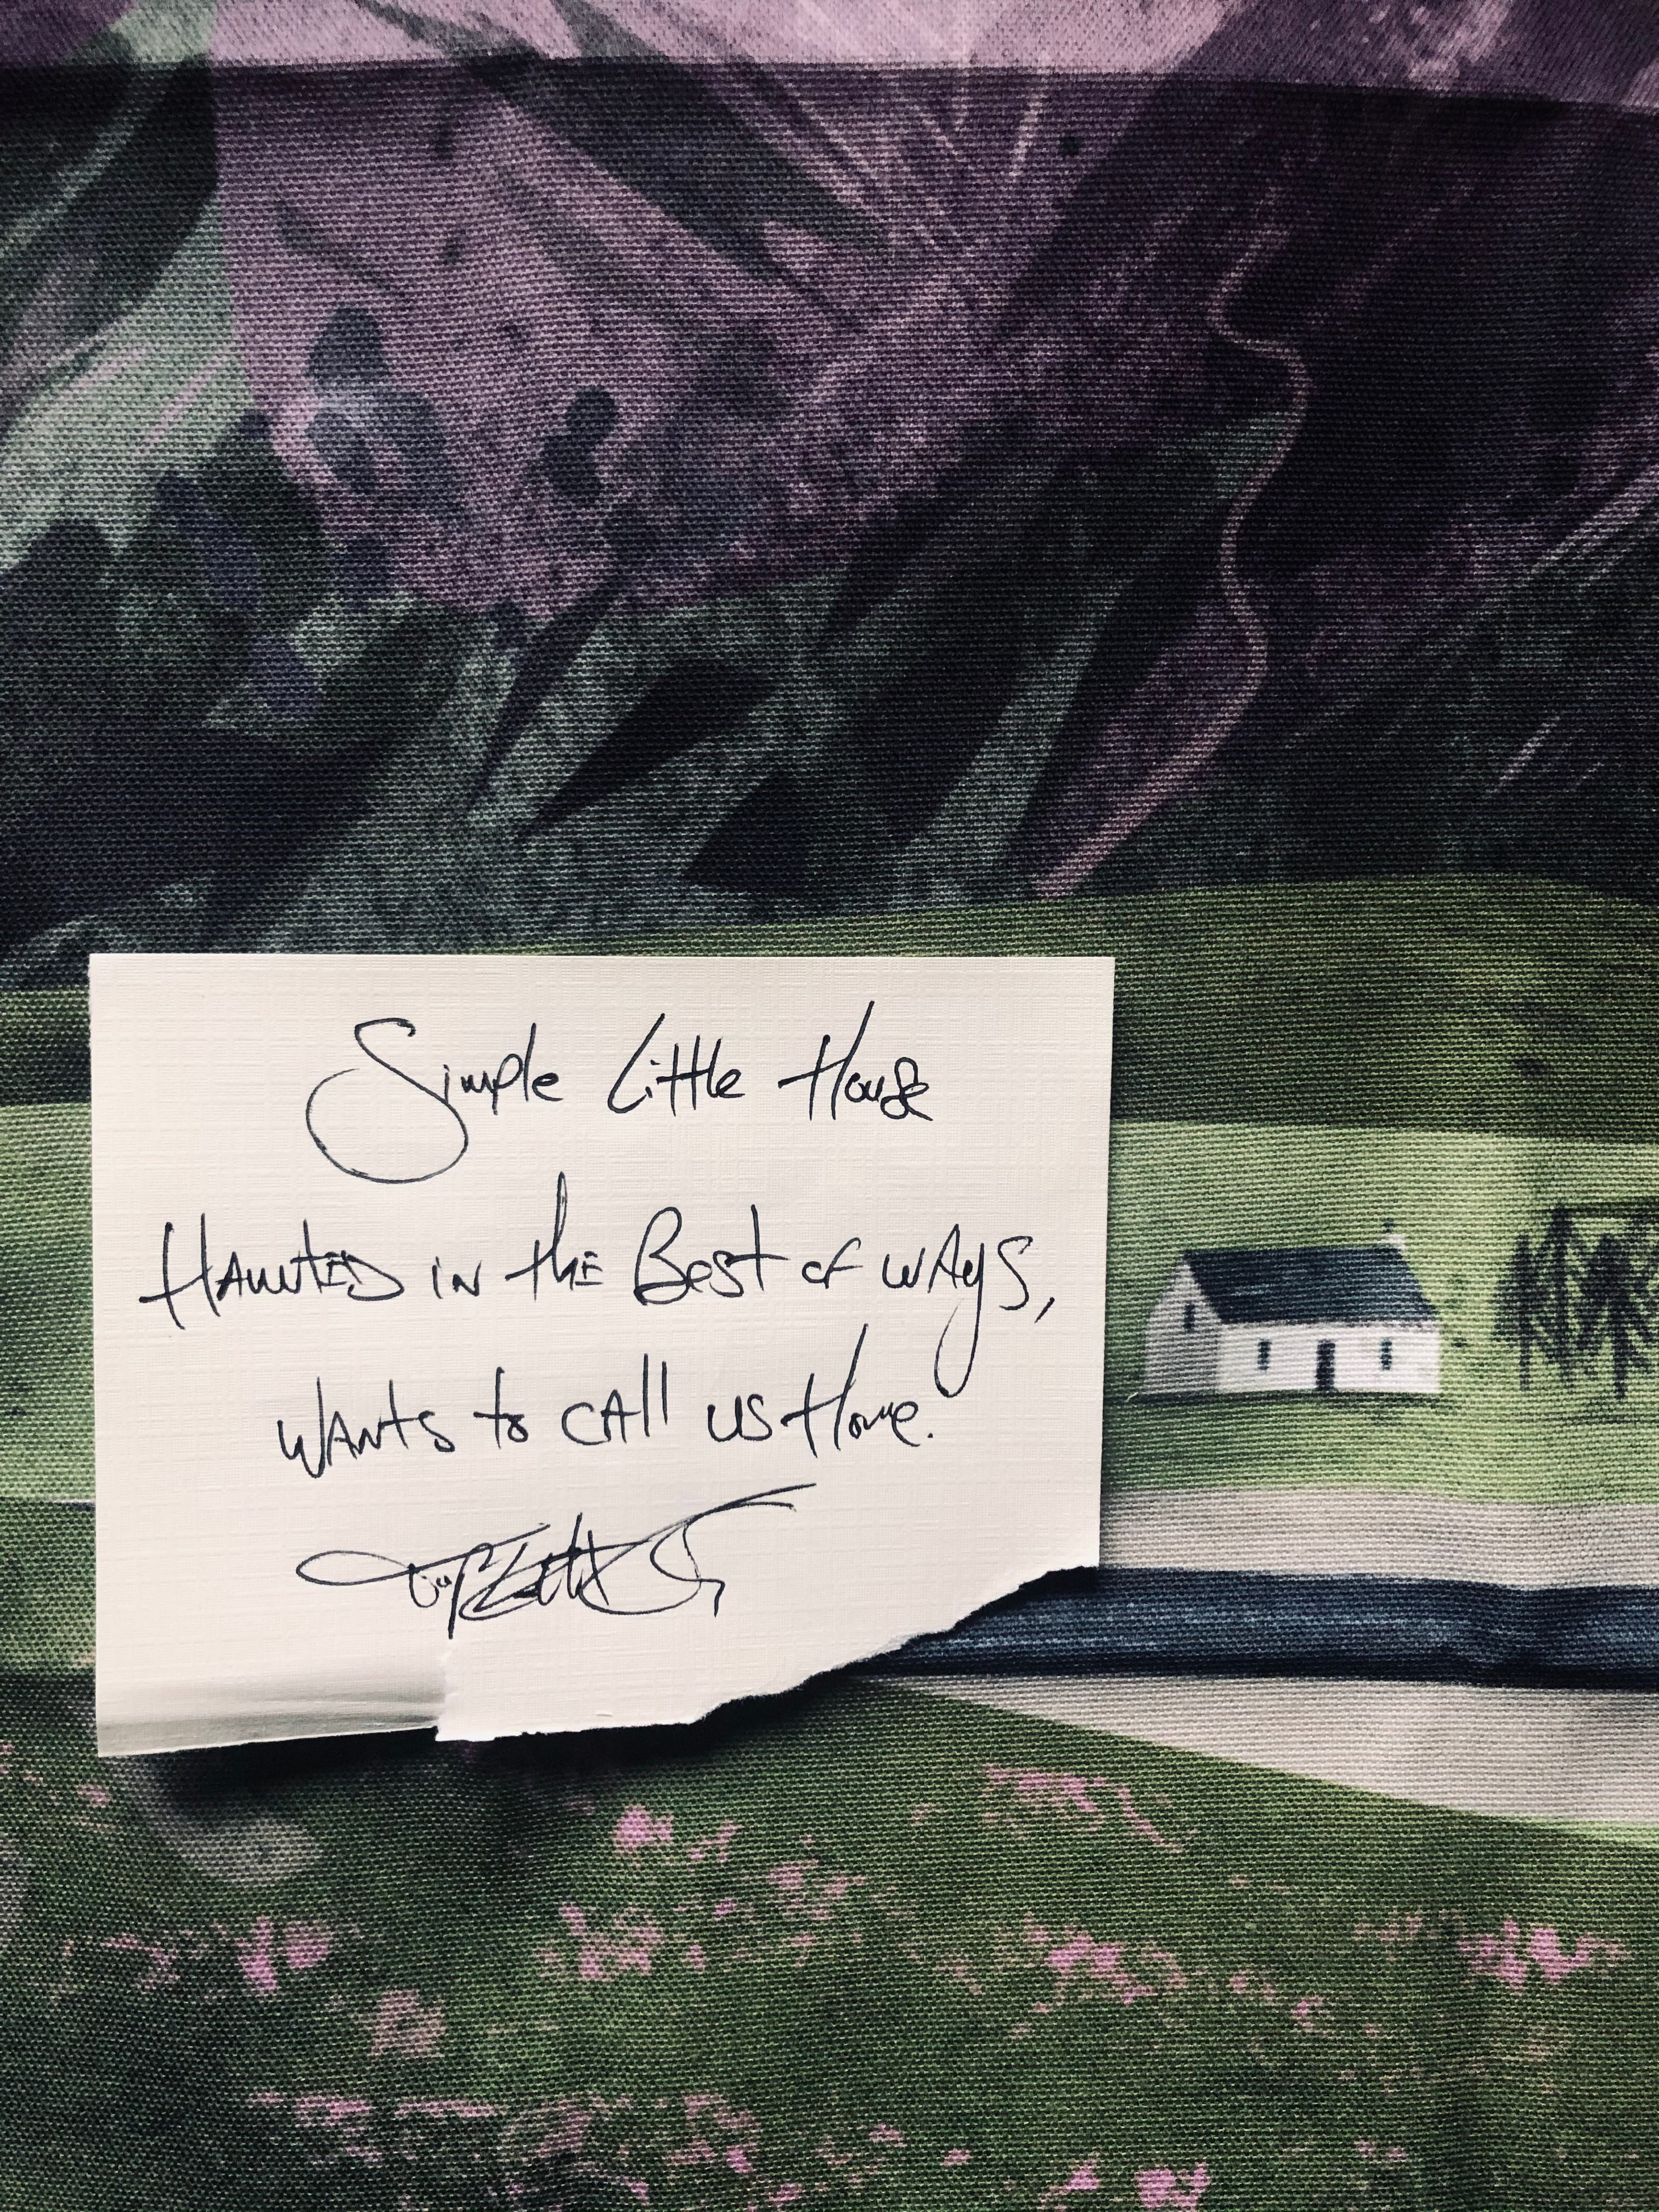 Simple Little House
Haunted in the Best of ways,
wants to call us Home.